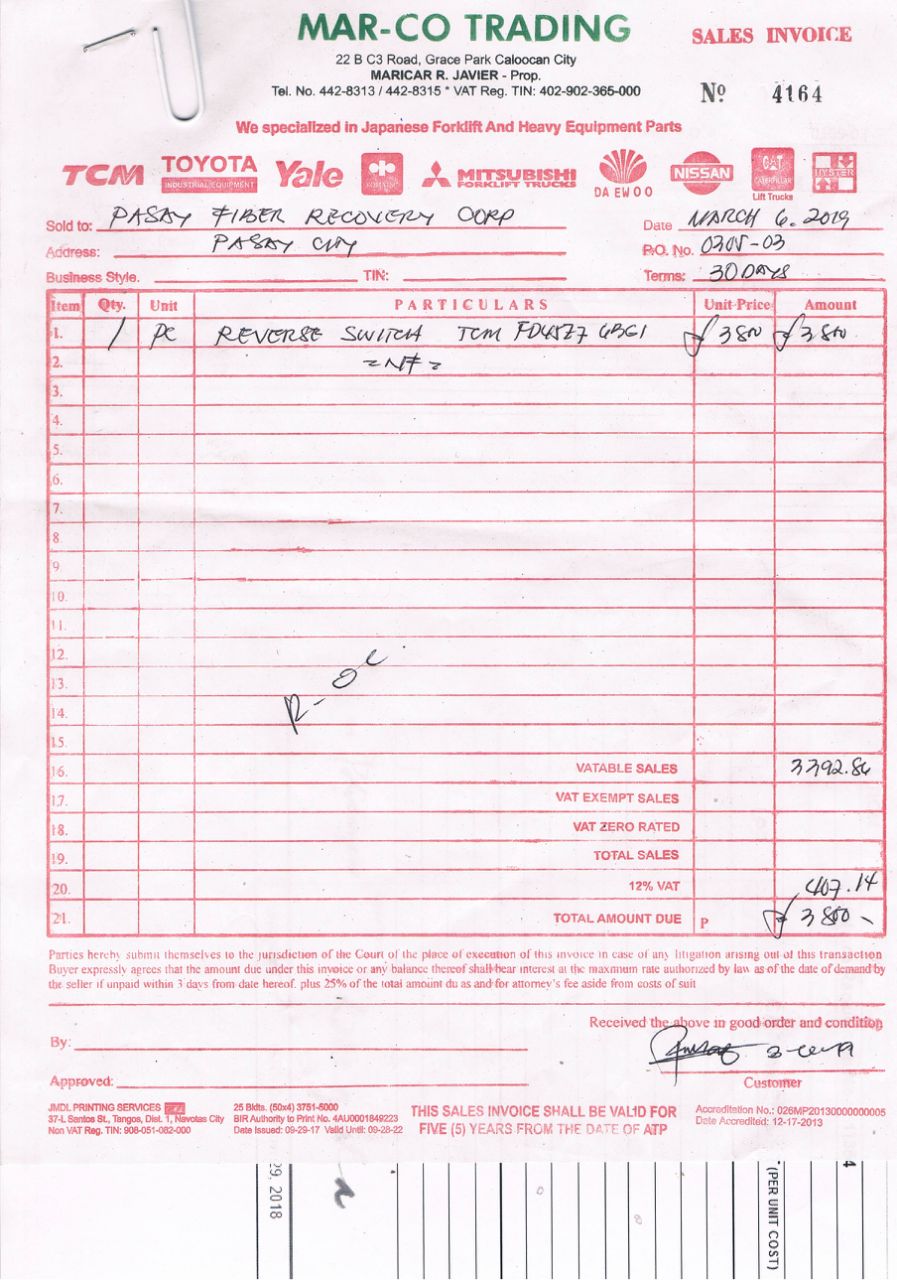 MAR-CO TRADING
SALES INVOICE
22 B C3 Road, Grace Park Caloocan City
MARICAR R. JAVIER - Prop.
Tel. No. 442-8313 / 442-8315 * VAT Reg. TIN: 402-902-365-000
Nº 4164
We specialized in Japanese Forklift And Heavy Equipment Parts
TCM TOYOTA INDUSTRIAL EQUIPMENT Yale KOMATSU MITSUBISHI FORKLIFT TRUCKS DAEWOO NISSAN CAT CATERPILLAR Lift Trucks HYSTER
Sold to: PASAY FIBER RECOVERY CORP Date MARCH 6. 2019
Address: PASAY CITY P.O. No. 0305-03
Business Style. TIN: Terms: 30 DAYS
Item Qty. Unit PARTICULARS Unit Price Amount
1. 1 PC REVERSE SWITCH TCM 3800 3800
2. =NF=
3.
4.
5.
6.
7.
8
9
10.
11.
12.
13.
14.
15.
16. VATABLE SALES 3392.86
17. VAT EXEMPT SALES
18. VAT ZERO RATED
19. TOTAL SALES
20. 12% VAT 407.14
21. TOTAL AMOUNT DUE P 3800 -
Parties hereby submit themselves to the jurisdiction of the Court of the place of execution of this invoice in case of any litigation arising out of this transaction
Buyer expressly agrees that the amount due under this invoice or any balance thereof shall bear interest at the maximum rate authorized by law as of the date of demand by
the seller if unpaid within 3 days from date hereof. plus 25% of the total amount du as and for attorney's fee aside from costs of suit
Received the above in good order and condition
By:
Approved:
Customer
JMDL PRINTING SERVICES
37-L Santos St., Tangos, Dist. 1, Navotas City
Non VAT Reg. TIN: 908-051-082-000
25 Bklts. (50x4) 3751-5000
BIR Authority to Print No. 4AU0001849223
Date Issued: 09-29-17 Valid Until: 09-28-22
THIS SALES INVOICE SHALL BE VALID FOR
FIVE (5) YEARS FROM THE DATE OF ATP
Accreditation No.: 026MP20130000000005
Date Accredited: 12-17-2013
29, 2018
(PER UNIT COST)